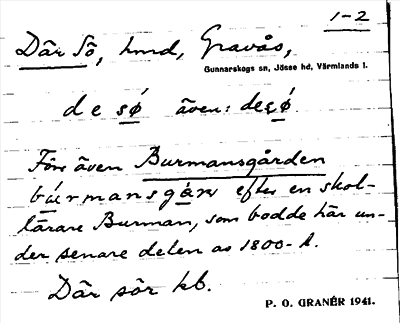 1-2
Där Sö, hmd, Gravås,
Gunnarskogs sn, Jösse hd, Värmlands l.
de sǿ även: deʂǿ.
Förr även Burmansgården
bu̇rmansgȧɳ efter en skol-
lärare Burman, som bodde här un-
der senare delen av 1800-t.
Där sör kb.
P. O. GRANÉR 1941.